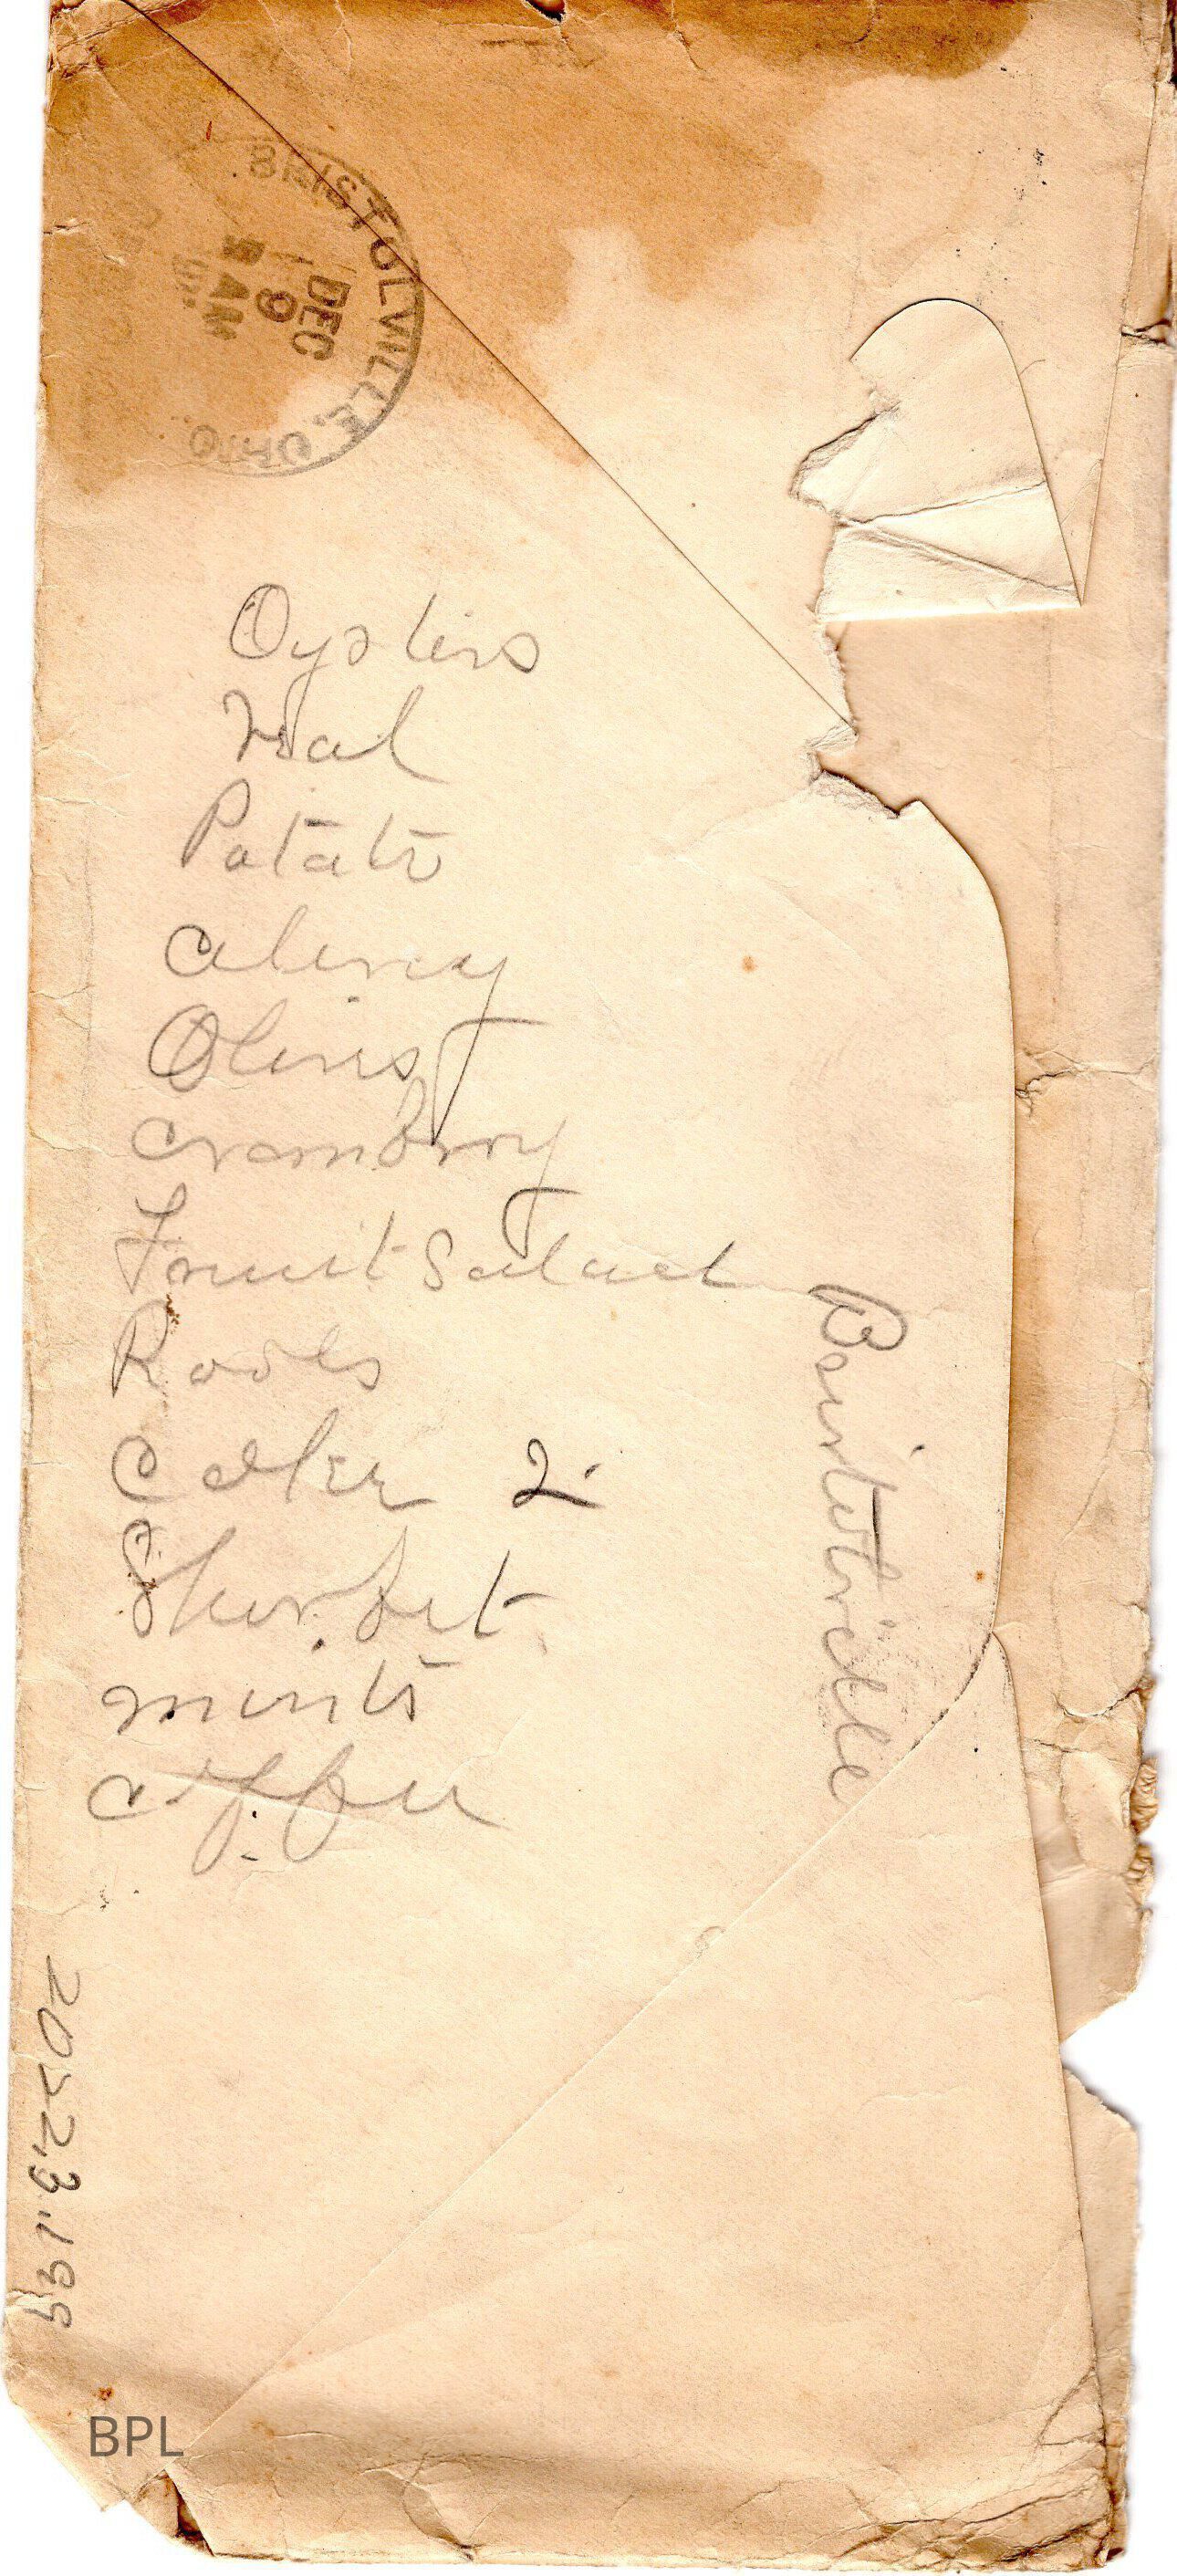 BRISTOLVILLE, OHIO
DEC
9
AM
Oysters
Veal
Potato
Celery
Olives
Cranbrry
Fruit Salad
Rools
Cake 2
Sherbet
mints
Coffee
2022.3.199
BPL